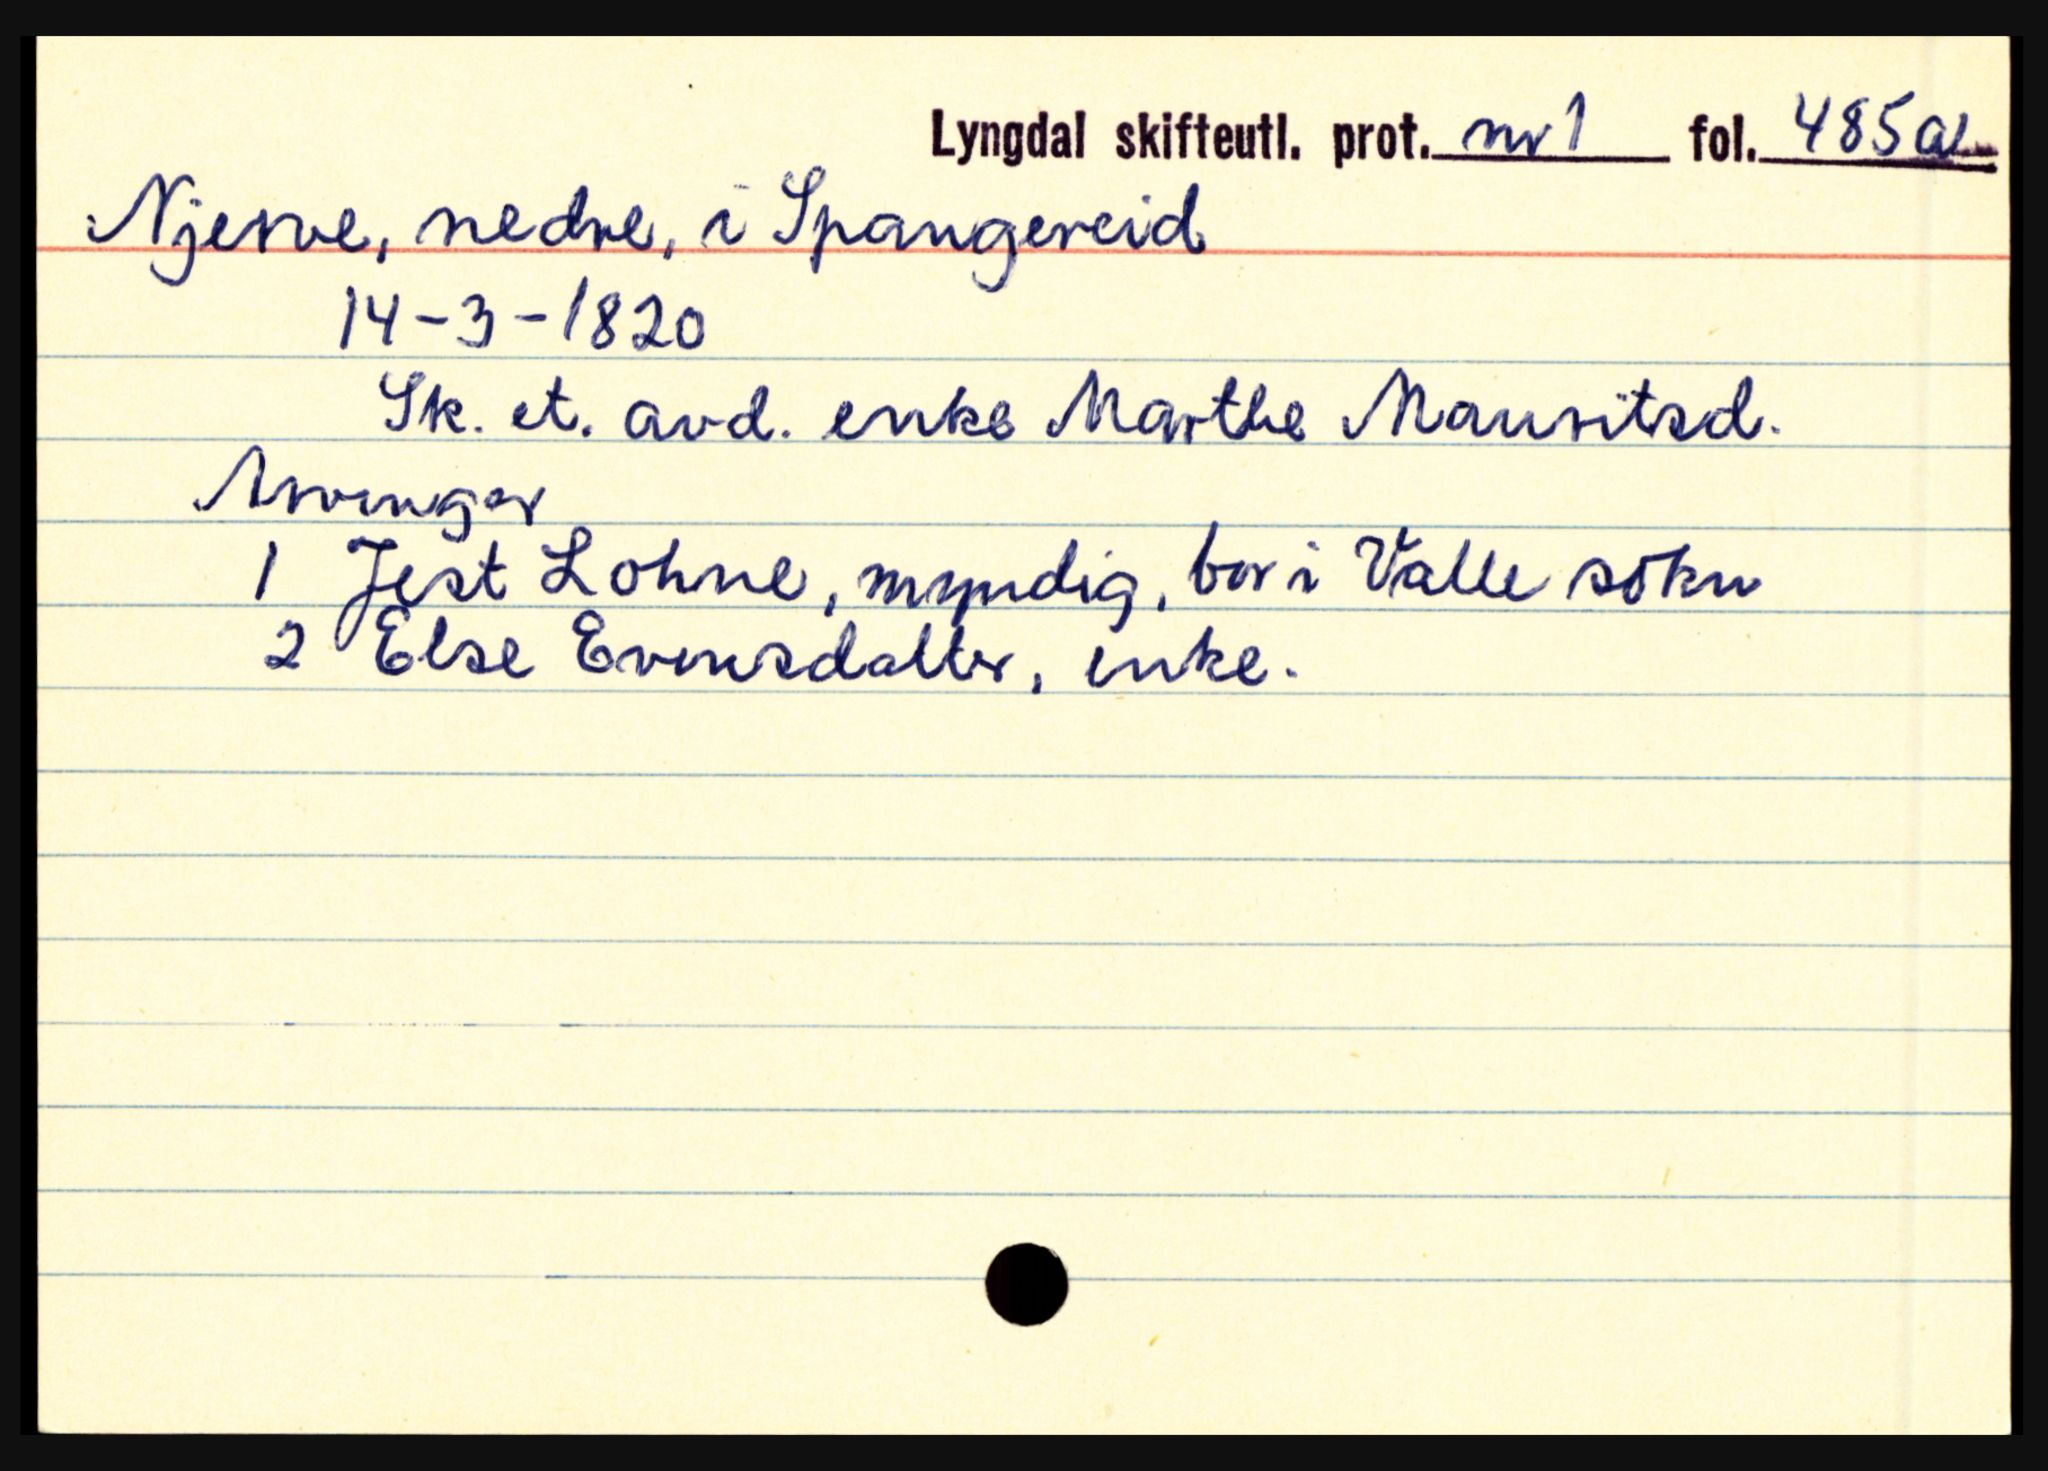 Lyngdal skifteutl. prot. nr 1 fol. 485a
Njerve, nedre, i Spangereid
14-3-1820
Sk. et. avd. enke Marthe Mauritsd.
Arvinger
1 Jest Lohne, myndig, bor i Valle sokn
2 Else Evensdatter, enke.